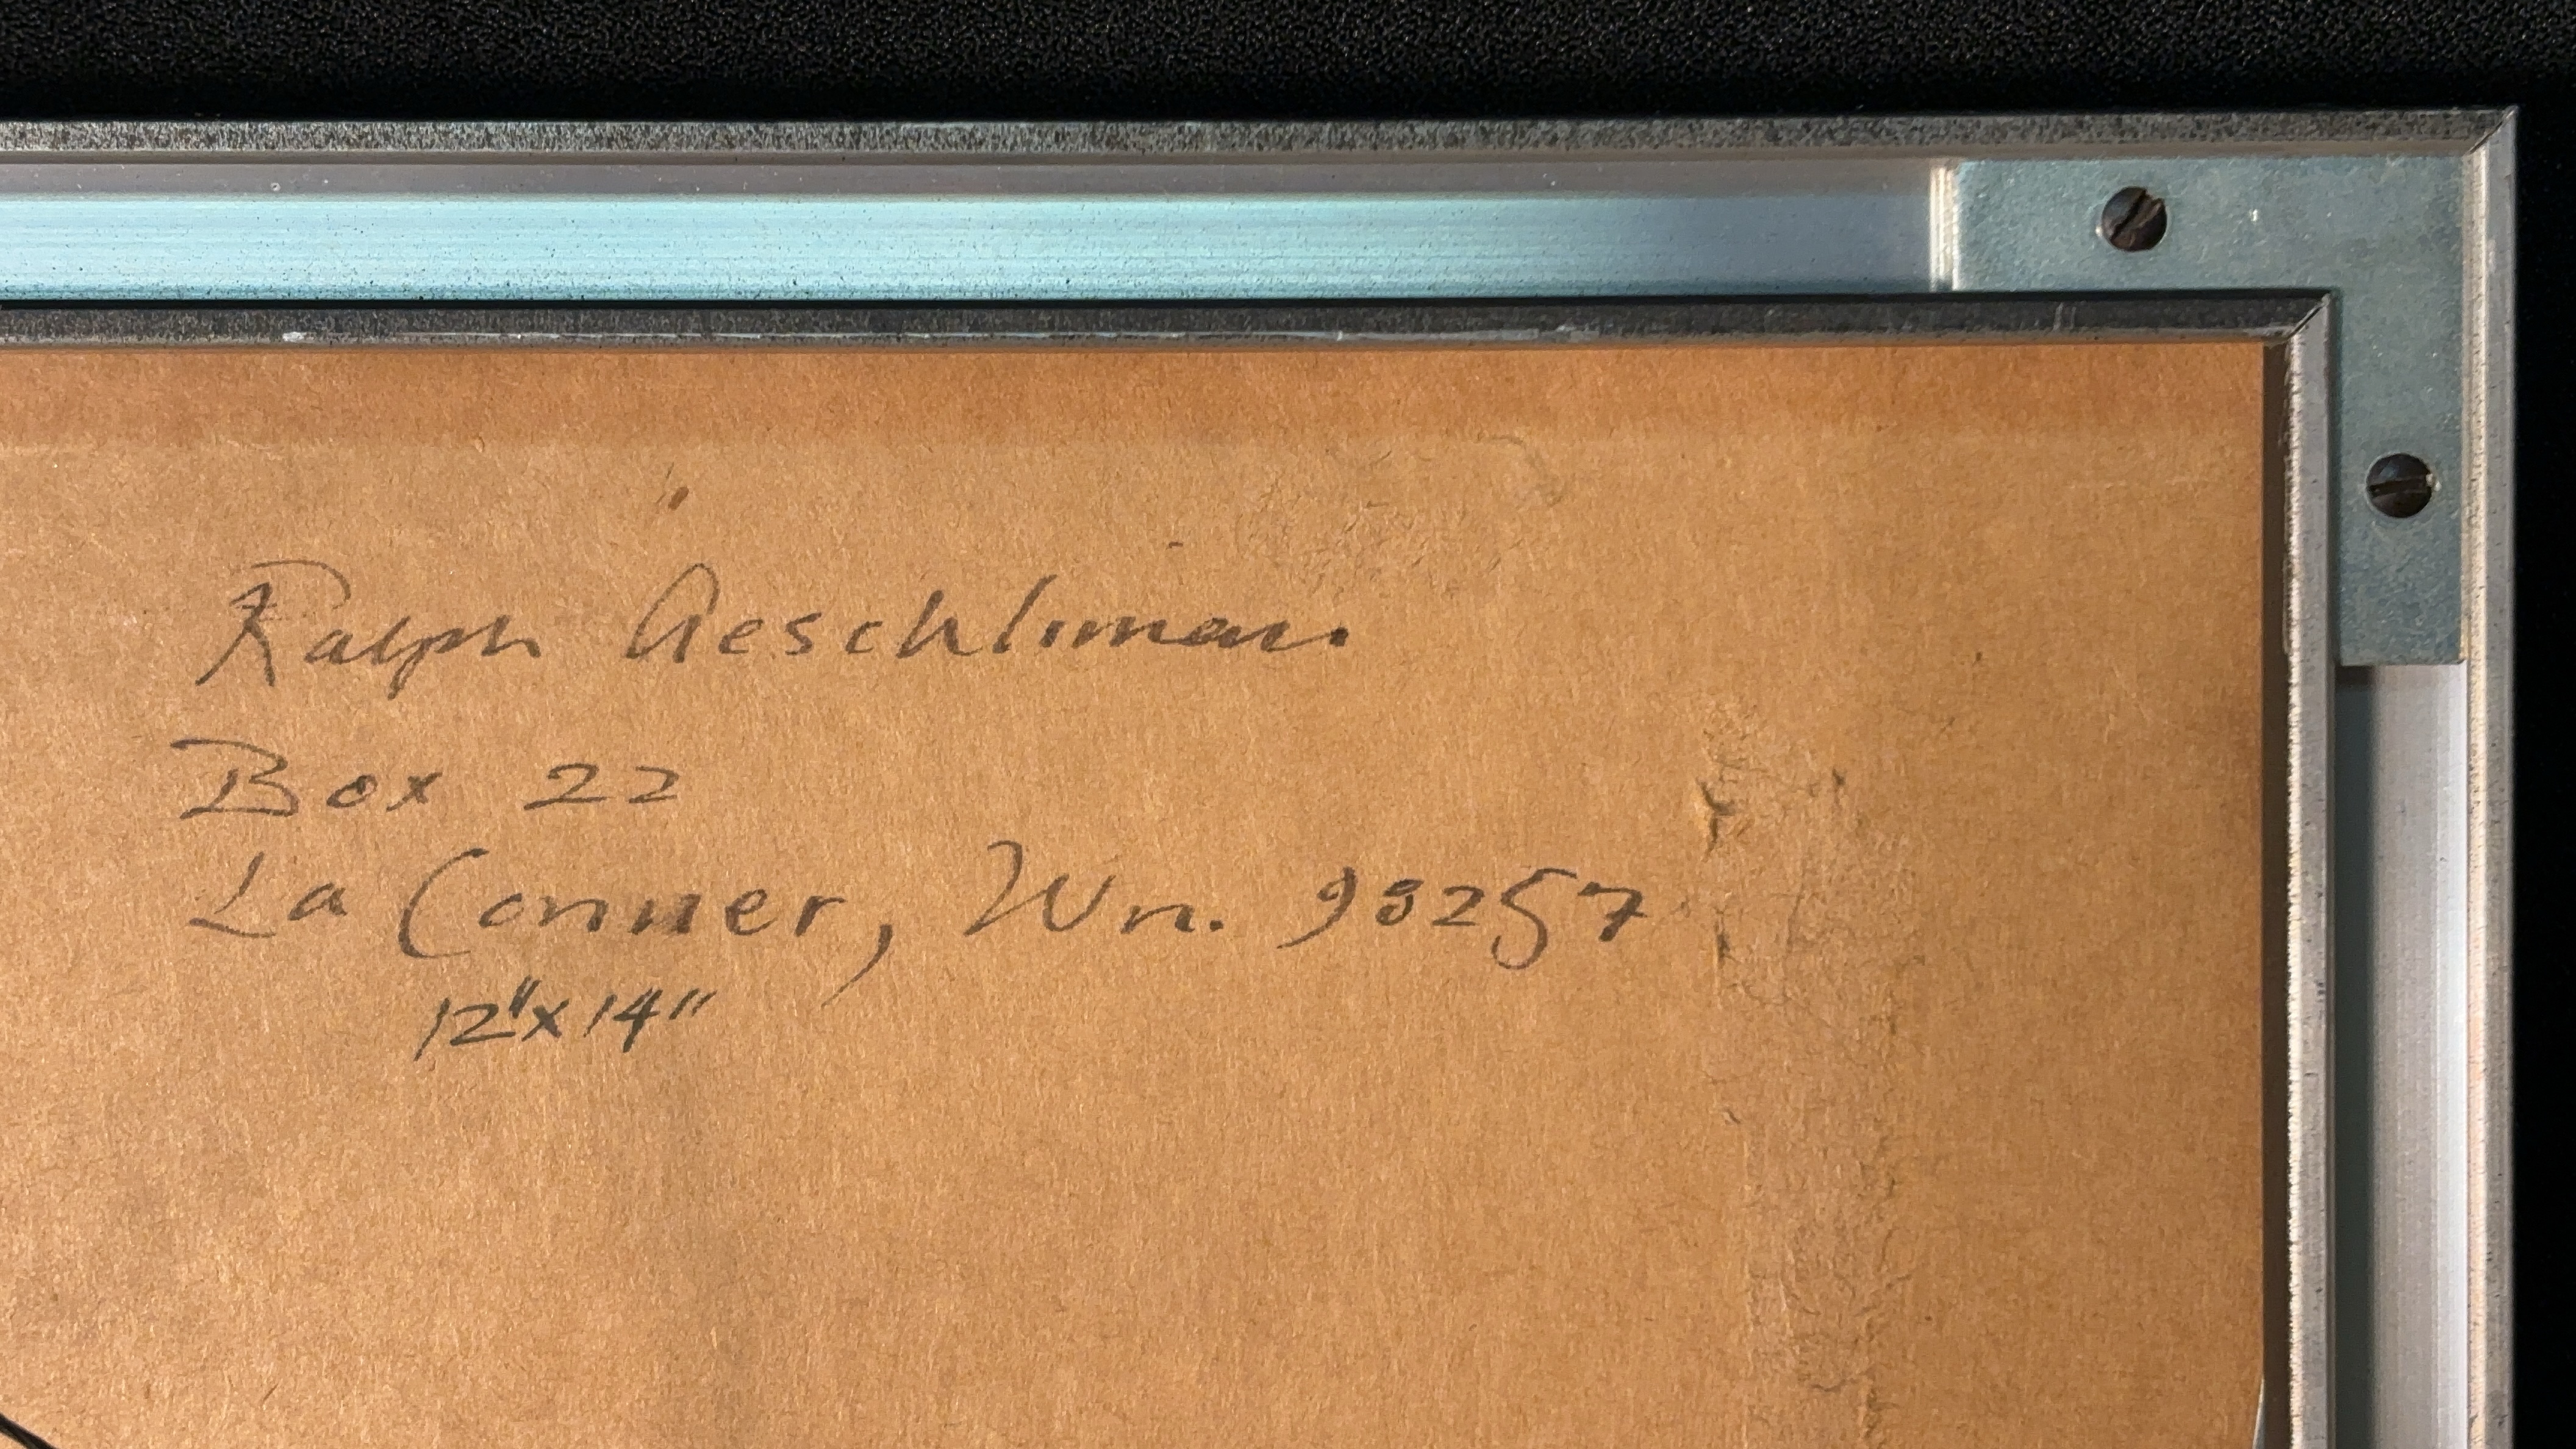 Ralph Aeschliman
Box 22
La Conner, Wn. 98257
12"x14"